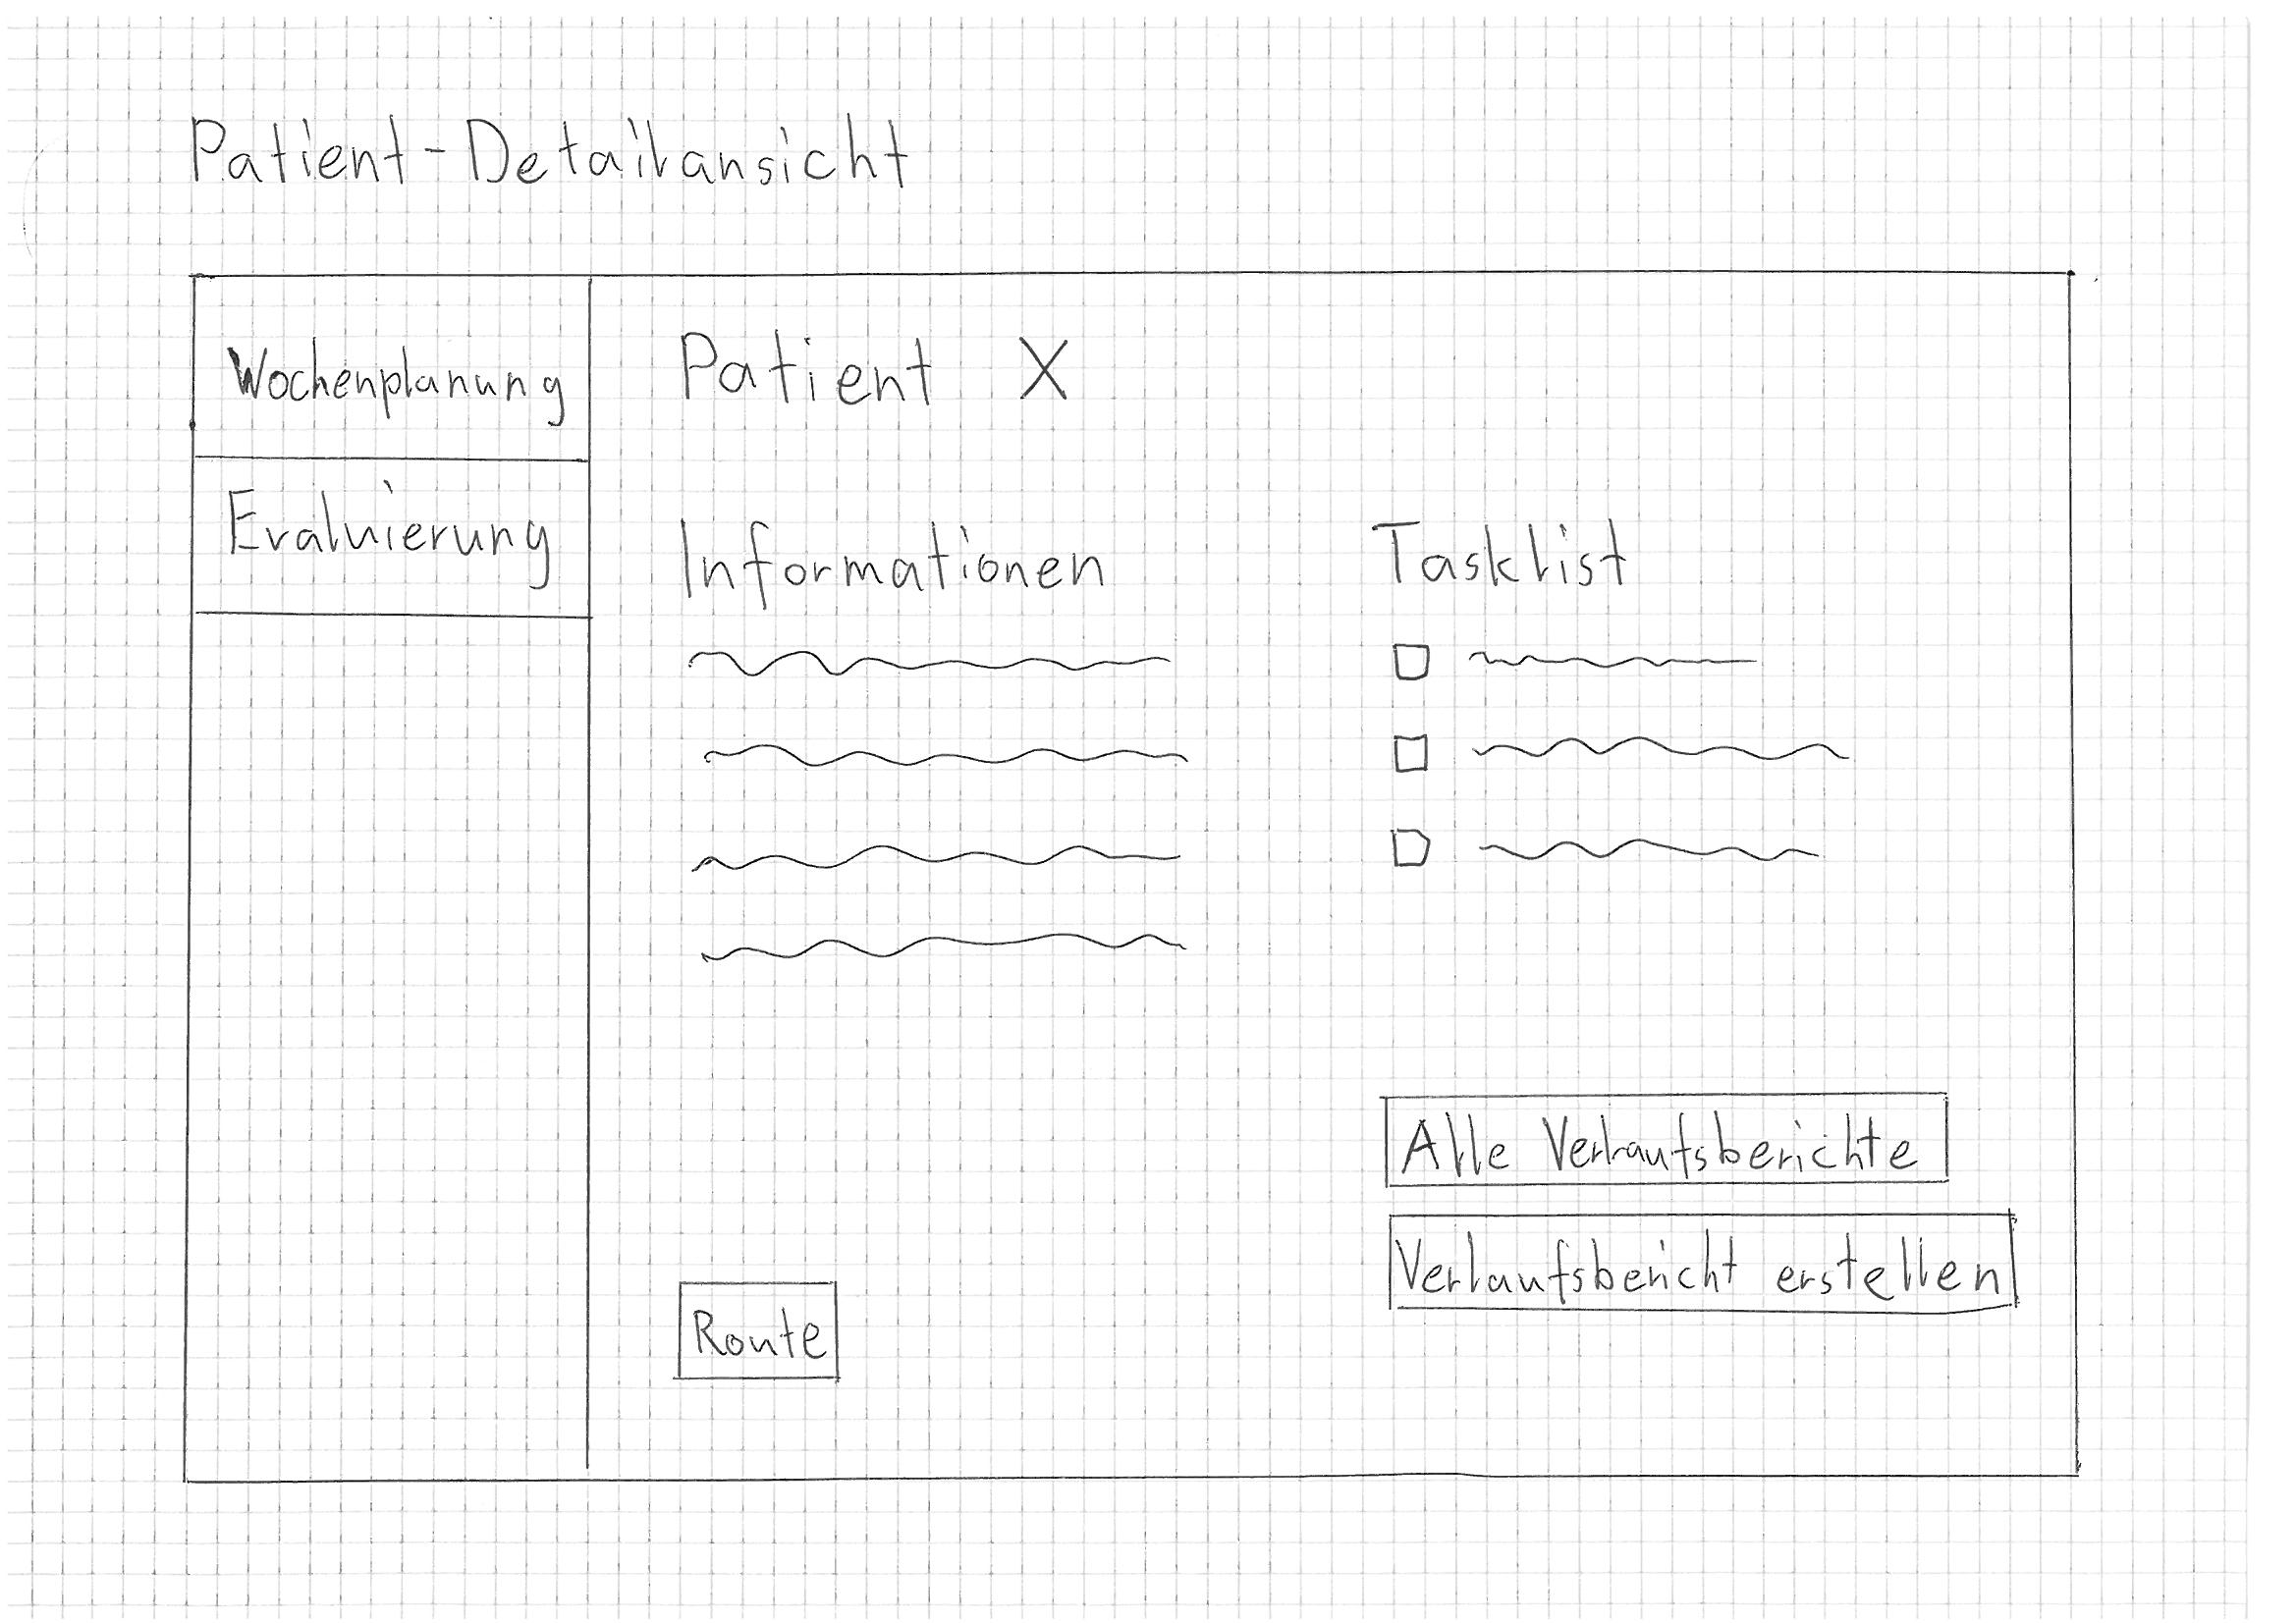 Patient-Detailansicht
Wochenplanung
Evaluierung
Patient X
Informationen
Tasklist
Alle Verlaufsberichte
Verlaufsbericht erstellen
Route